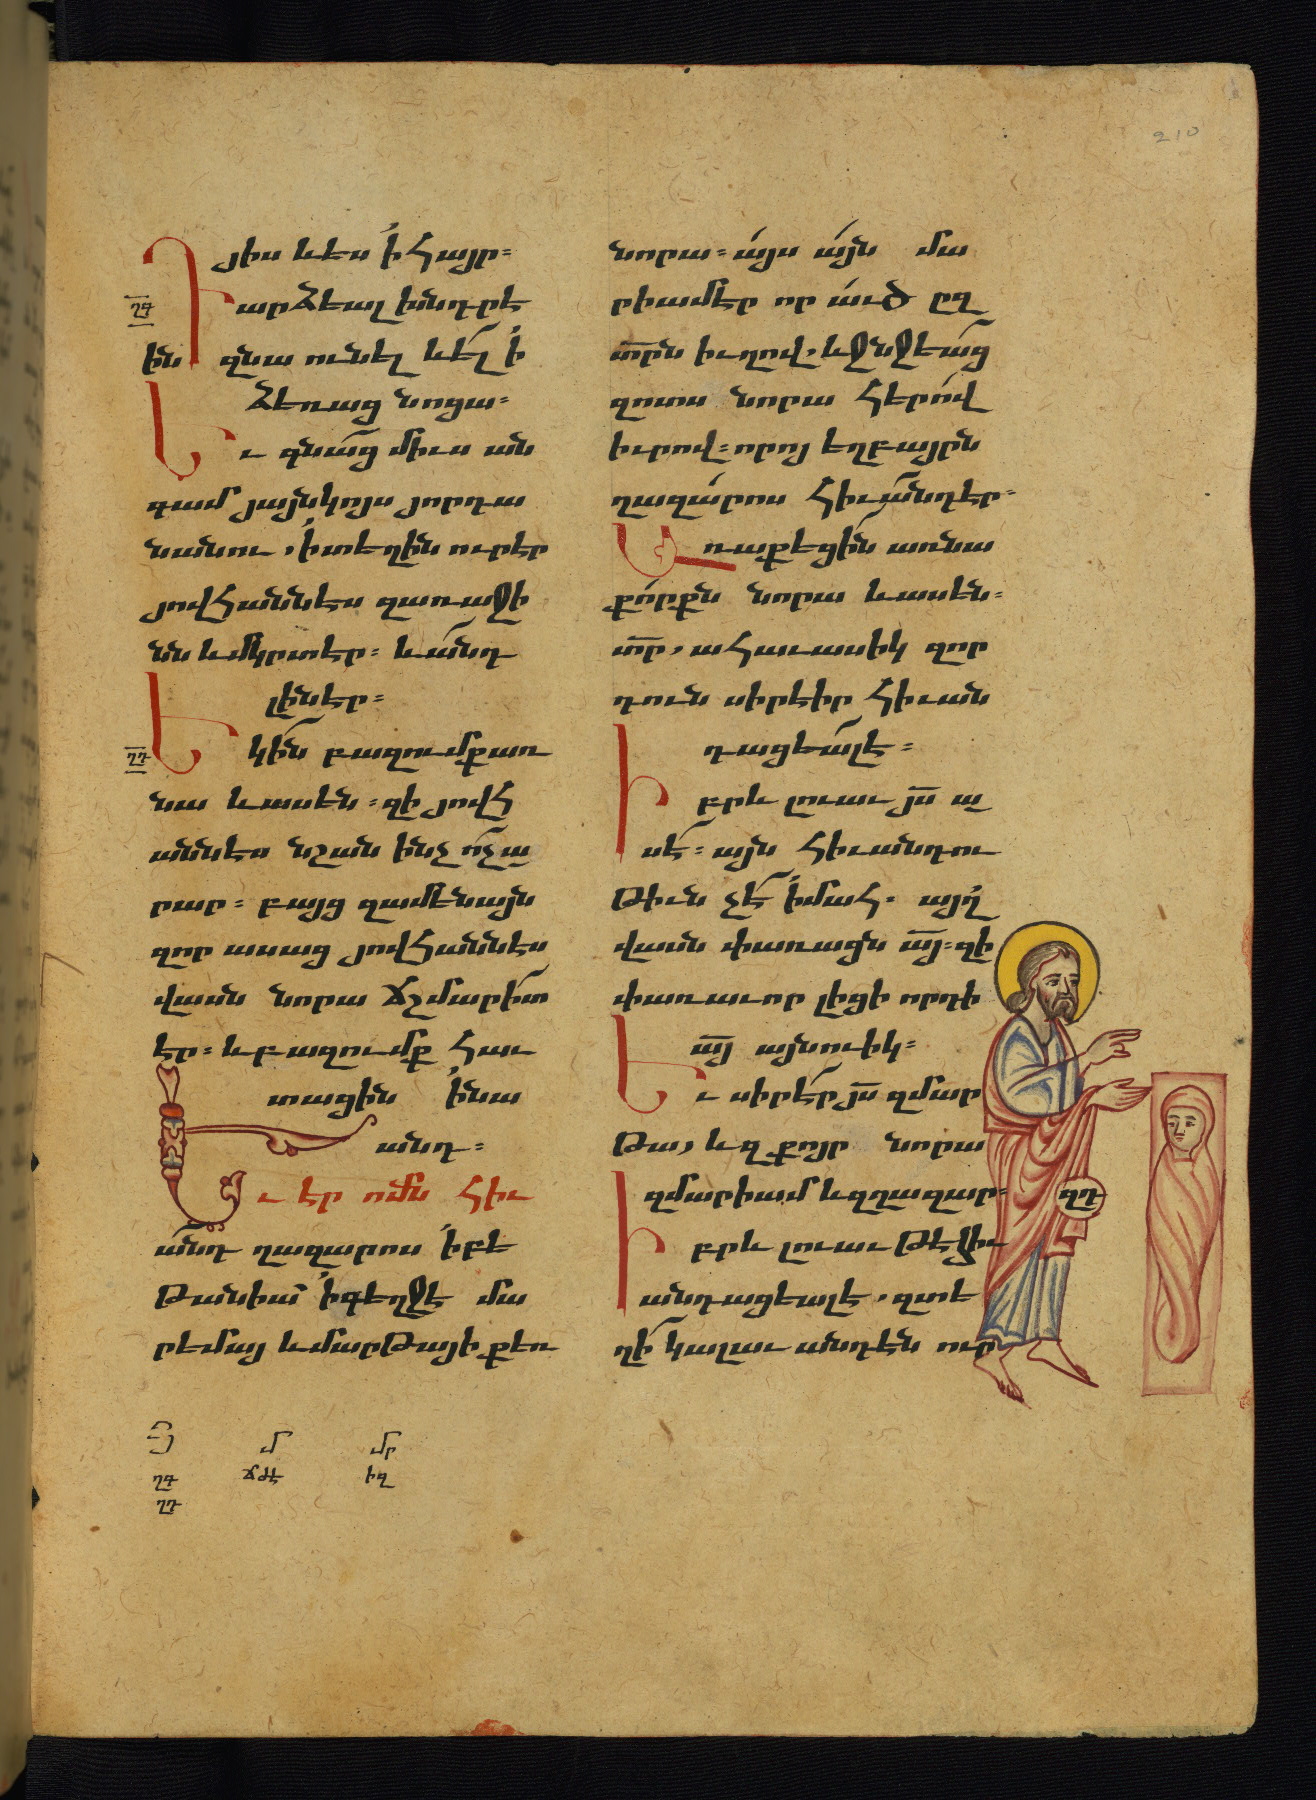 210
յիս և ես ի հայր։
Դարձեալ խնդրէ
ին զնա ունել և ել ի
ձեռաց նոցա։
Եւ գնաց միւս ան
գամ յայնկոյս յորդա
նանու, ի տեղին ուր էր
յովհաննէս զառաջի
նն և մկրտէր։ և անդ
լինէր։
ՂԳ
Եկին բազումք առ
նա և ասէն։ զի յովհ
աննէս նշան ինչ ոչ ա
րար։ բայց զամենայն
զոր ասաց յովհաննէս
վասն նորա ճշմարիտ
էր։ և բազումք հաւ
ատացին ի նա
անդ։
ՂԴ
Եւ էր ոմն հիւ
անդ ղազարոս ի բէ
թանիա՝ ի գեղջէ մա
րեմայ և մարթայի քեռ
մ մր
ՂԳ ՃԺԷ ԻԶ
ՂԴ
նորա։ այս այն մա
րիամ էր որ աւծ ըզ
տրն իւղով, և ջնջեաց
զոտս նորա հերով
իւրով։ որոյ եղբայրն
ղազարոս հիւանդ էր։
Առաքեցին առ նա
քորքն նորա և ասեն։
տր, ահաւասիկ զոր
դուն սիրէիր հիւան
դացեալ է։
Իբրև լուաւ յս ա
սէ։ այն հիւանդու
թիւն չէ ի մահ. այղ
վասն փառացն այ։ զի
փառաւոր լիցի որդի
այ այնուիկ։
Եւ սիրէր յս զմար
թա, և զքոյր նորա
զմարիամ և զղազար։
Իբրև լուաւ թէ հիւ
անդացեալ է, զտե
ղի կալաւ անդէն ուր
ՂԴ